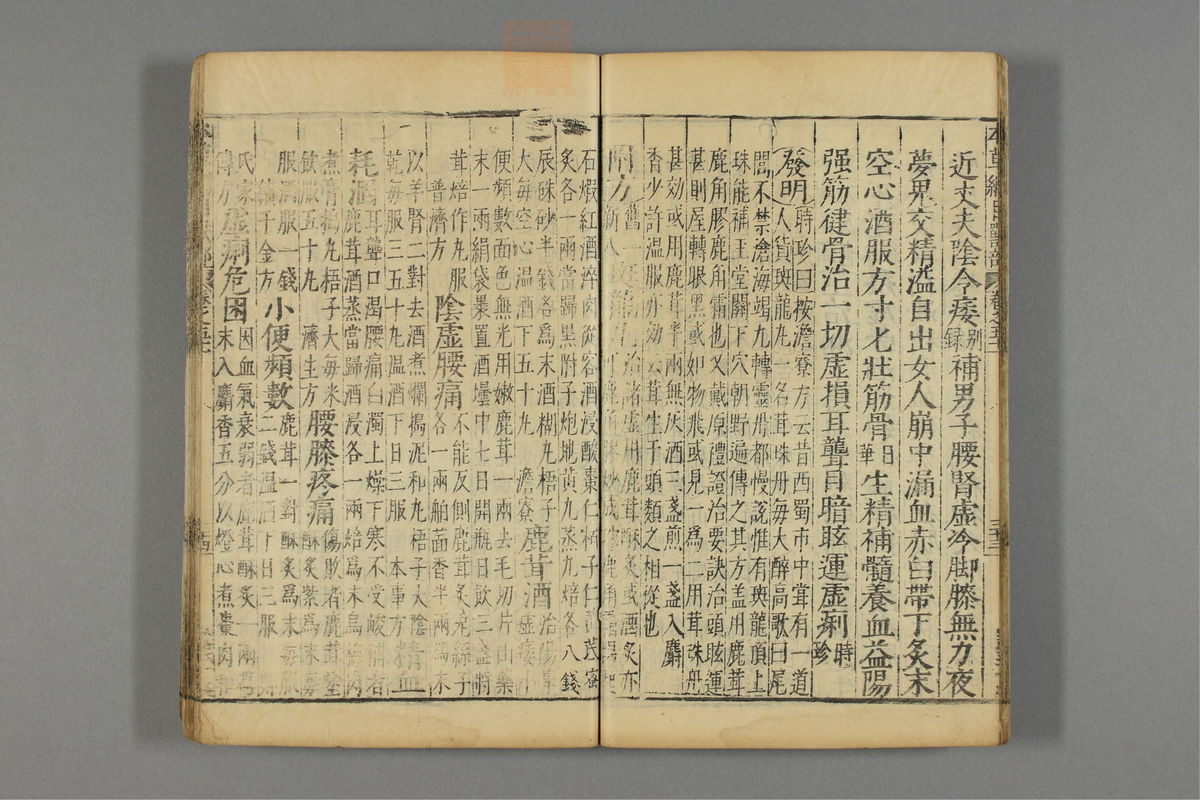 近丈夫陰令痿別錄補男子腰腎虛冷脚膝無力夜
夢鬼交精溢自出女人崩中漏血赤白帶下炙末
空心酒服方寸匕壯筋骨日華生精補髓養血益陽
强筋健骨治一切虛損耳聾目暗眩運虛痢時珍
發明時珍曰按澹寮方云昔西蜀市中嘗有一道
人貨斑龍丸一名茸珠丹每大醉高歌曰尾
閭不禁滄海竭九轉靈丹都慢說惟有斑龍頂上
珠能補玉堂關下穴朝野遍傳之其方盖用鹿茸
鹿角膠鹿角霜也又戴原禮證治要訣治頭眩運
甚則屋轉眼黑或如物飛或見一爲二用茸珠丹
甚効或用鹿茸半兩無灰酒三盞煎一盞入麝
香少許温服亦効云茸生于頭類之相從也
附方舊一新八斑龍丸治諸虛用鹿茸酥炙或酒炙亦
石煆紅酒淬肉從容酒浸酸棗仁栢子仁黃芪蜜
炙各一兩當歸黑附子炮地黃九蒸九焙各八錢
辰硃砂半錢各爲末酒糊丸梧子
大每空心温酒下五十丸 澹寮 鹿茸酒治陽事虛痿小
便頻數面色無光用嫩鹿茸一兩去毛切片山藥
末一兩絹袋褁置酒壜中七日開瓶日飲三盞將
茸焙作丸服
普濟方 陰虛腰痛不能反側鹿茸炙兔絲子各一兩舶茴香半兩爲末
以羊腎二對去酒煮爛搗泥和丸梧子大陰
乾每服三五十丸温酒下日三服 本事方 精血
耗涸耳聾口渴腰痛白濁上燥下寒不受峻補者
鹿茸酒蒸當歸酒浸各一兩焙爲末烏梅肉
煮膏搗丸梧子大每米
飲服五十丸 濟生方 腰膝疼痛傷敗者鹿茸塗酥炙紫爲末每
服酒服一錢 小便頻數鹿茸一對酥炙爲末每服
二錢温酒下日三服
千金方
氏家
傳方 虛痢危困因血氣衰弱者鹿茸酥炙一兩爲
末入麝香五分以燈心煮棗肉和